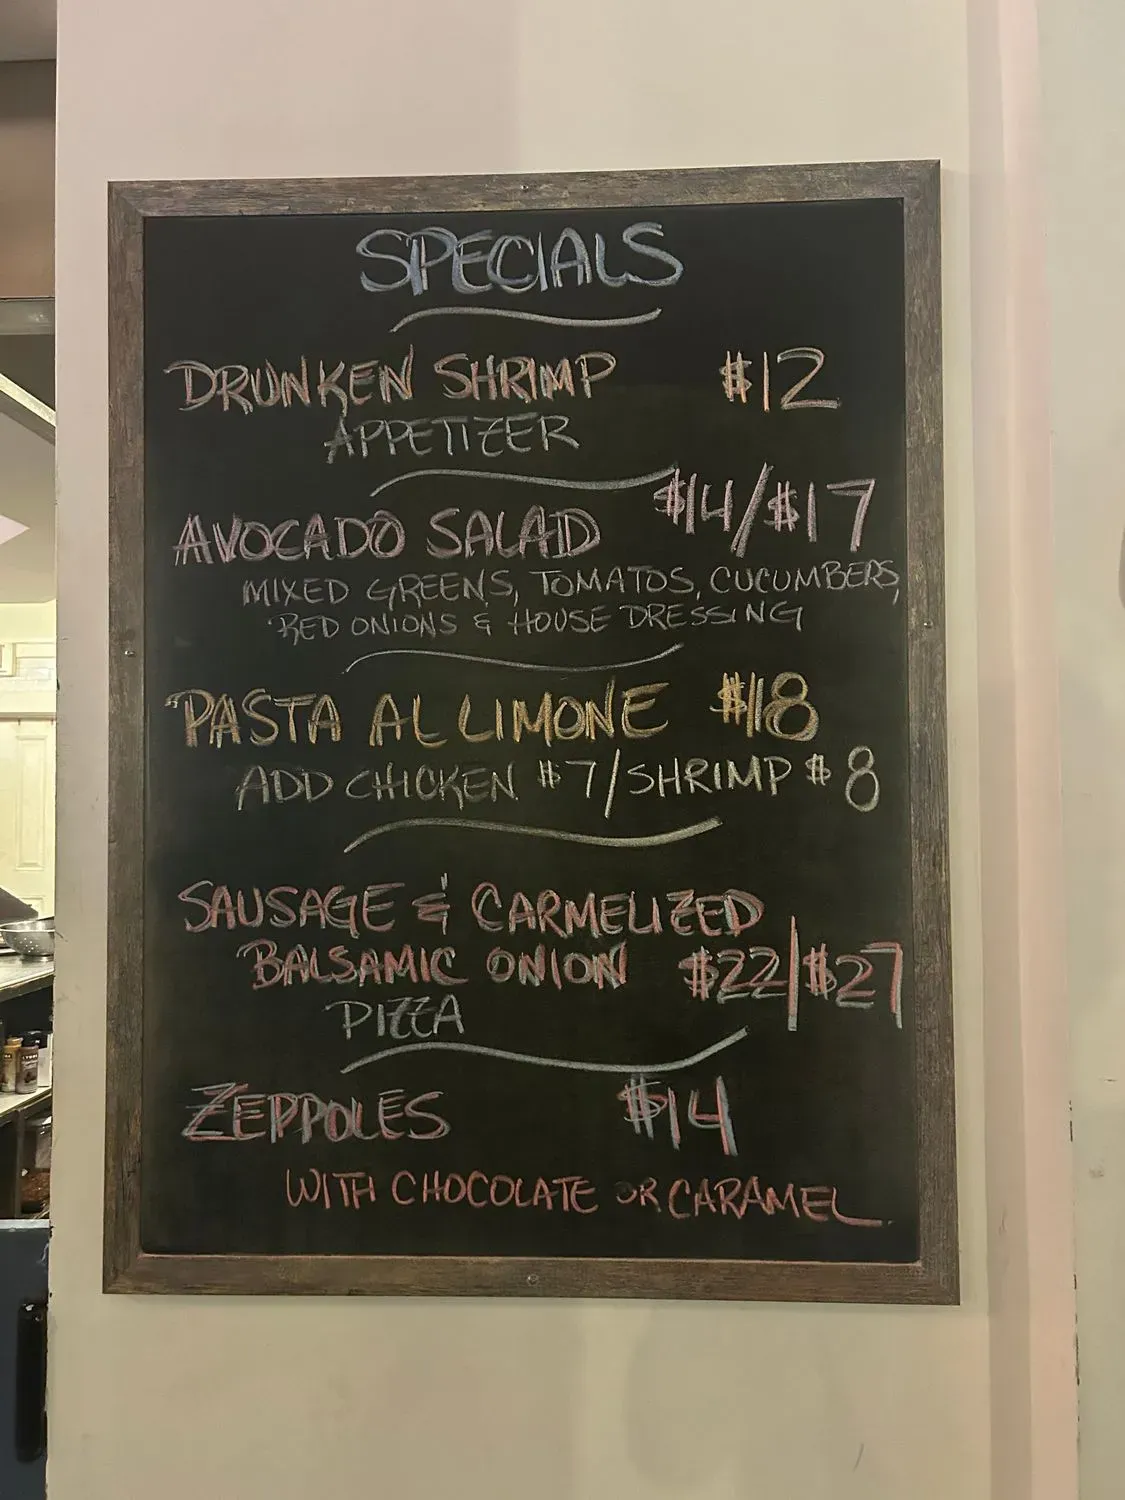 SPECIALS
DRUNKEN SHRIMP $12
APPETIZER
AVOCADO SALAD $14/$17
MIXED GREENS, TOMATOS, CUCUMBERS,
RED ONIONS & HOUSE DRESSING
PASTA AL LIMONE $18
ADD CHICKEN $7/SHRIMP $8
SAUSAGE & CARMELIZED
BALSAMIC ONION $22/$27
PIZZA
ZEPPOLES $14
WITH CHOCOLATE OR CARAMEL